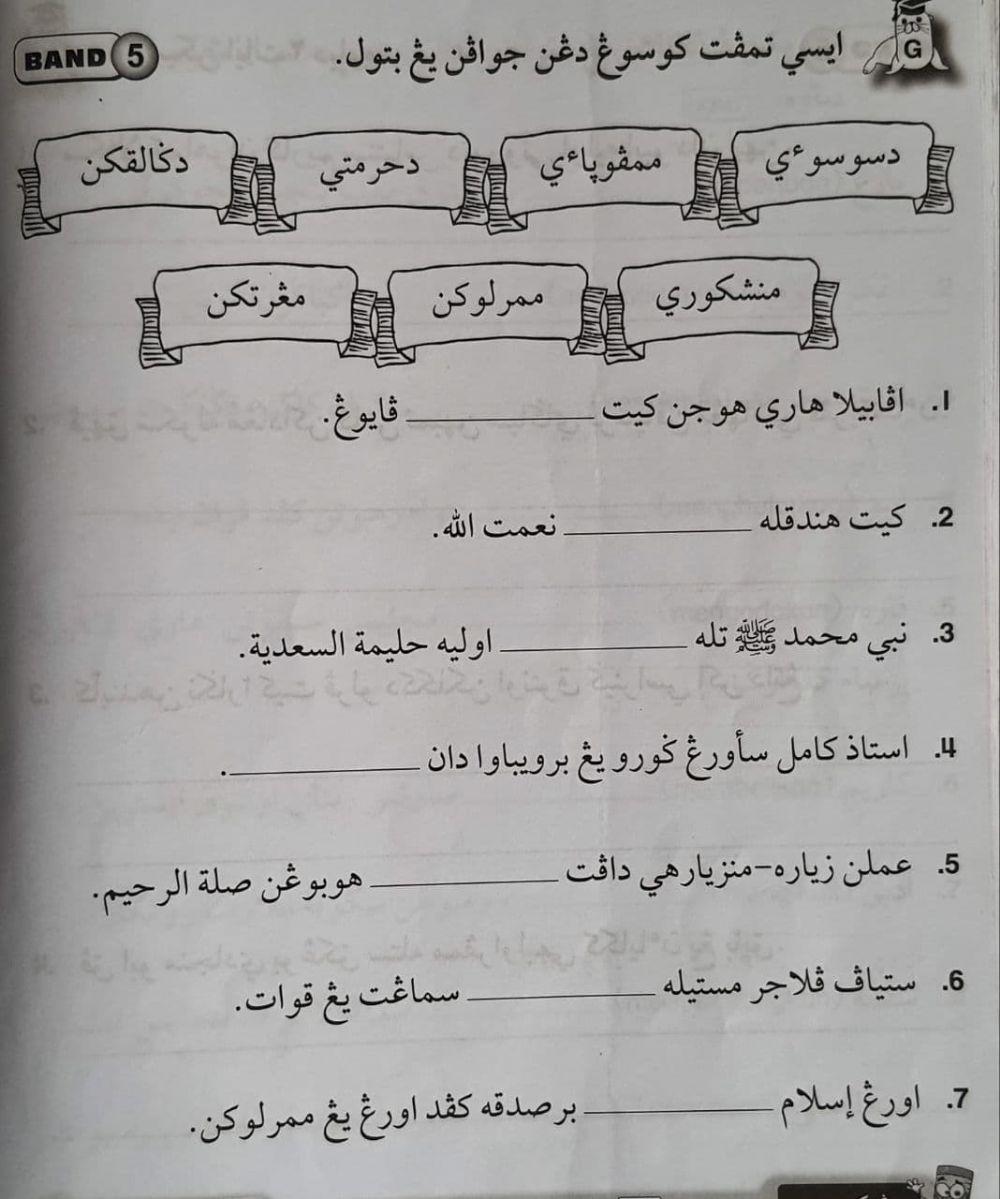 BAND 5
ايسي تمڤت كوسوڠ دڠن جواڤن يڠ بتول.
G
دسوسوءي ممڤوڽاءي دحرمتي دݢالقكن
منشكوري ممرلوكن مڠرتكن
1. اڤابيلا هاري هوجن كيت __________ ڤايوڠ.
2. كيت هندقله __________ نعمت الله.
3. نبي محمد ﷺ تله __________ اوليه حليمة السعدية.
4. استاذ كامل سأورڠ ݢورو يڠ برويباوا دان __________.
5. عملن زياره-منزيارهي داڤت __________ هوبوڠن صلة الرحيم.
6. ستياڤ ڤلاجر مستيله __________ سماڠت يڠ قوات.
7. اورڠ إسلام __________ برصدقه كڤد اورڠ يڠ ممرلوكن.